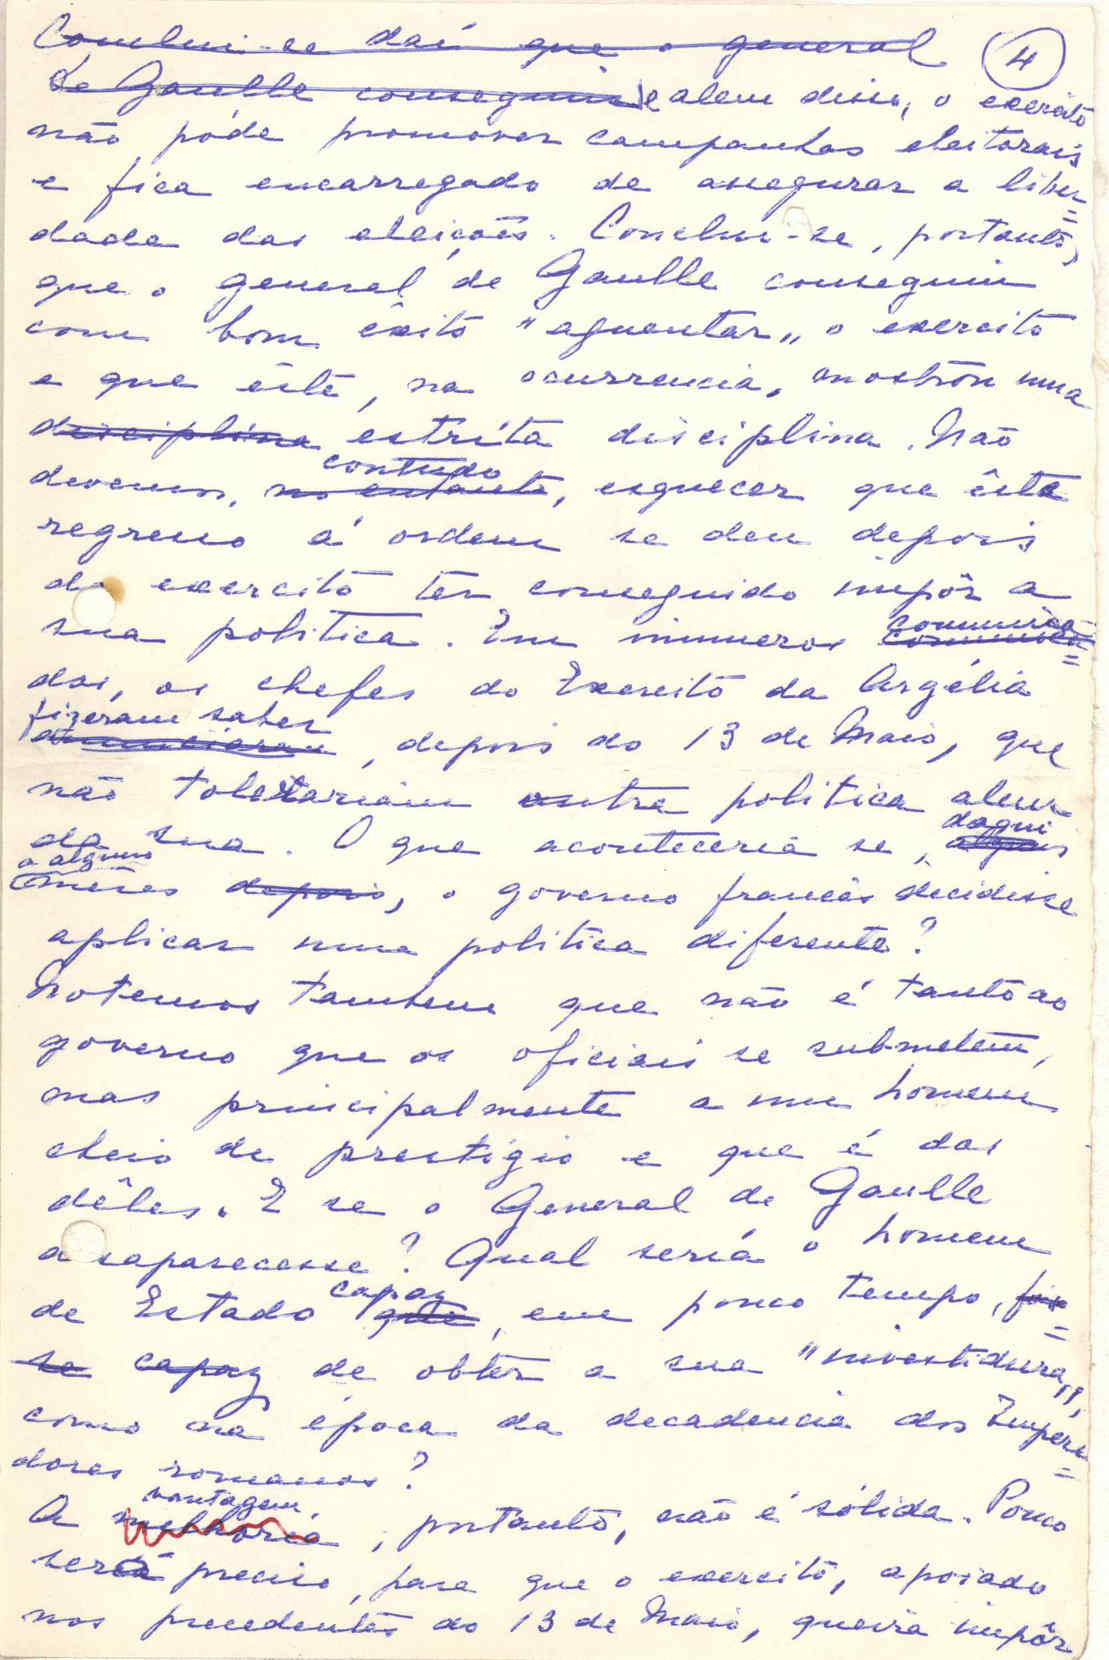 Conclui-se daí que o general
4
de Gaulle conseguiu e alem disso, o exercito
não póde promover campanhas eleitorais
e fica encarregado de assegurar a liber=
dade das eleições. Conclui-se, portanto,
que o general de Gaulle conseguiu
com bom êxito "aguentar" o exercito
e que êste, na ocurrencia, mostrou uma
disciplina estríta disciplina. Não
contudo
devemos, no entanto, esquecer que êste
regresso á ordem se deu depois
do exercito ter conseguido impôr a
sua politica. Em inumeros comunica=
dos, os chefes do Exercito da Argélia
fizeram saber
anunciaram, depois do 13 de Maio, que
não tolerariam outra politica alem
da sua. O que aconteceria se, daqui
alguns
a alguns
mêses depois, o governo francês decidisse
aplicar uma politica diferente?
Notemos tambem que não é tanto ao
governo que os oficiais se submetem,
mas principalmente a um homem
cheio de prestígio e que é dos
dêles. E se o General de Gaulle
desaparecesse? Qual seria o homem
capaz
de Estado que, em pouco tempo, fos=
se capaz de obter a sua "investidura",
como na época da decadencia dos Impera=
dores romanos?
vantagem
A melhoria, portanto, não é sólida. Pouco
será preciso, para que o exercito, apoiado
nos precedentes do 13 de Maio, queira impôr